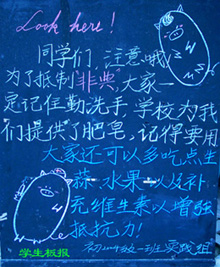 Look here!
同学们,注意哦
为了抵制"非典",大家一
定记住勤洗手 学校为我
们提供了肥皂,记得要用
大家还可以多吃点生
蒜,水果以及补
充维生素以增强
抵抗力!
初四级一班实践组
学生板报